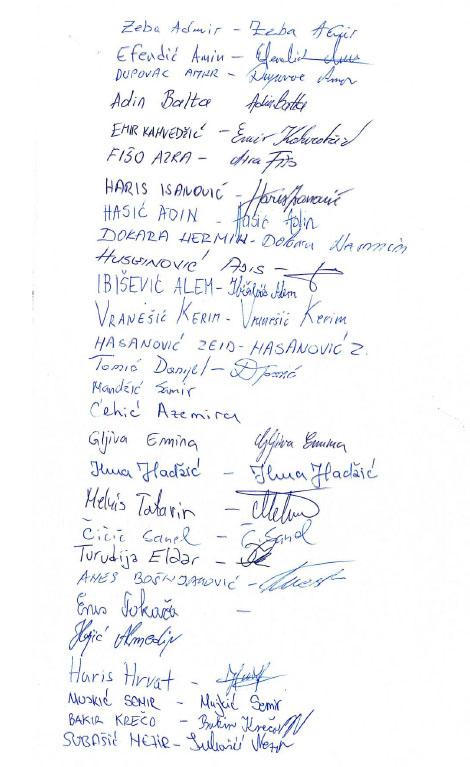 Zeba Admir - Zeba Admir
Efendić Amin -
DUPOVAC AMAR - Dupovac Amar
Adin Balta Adin Balta
EMIR KAHVEDŽIĆ - Emir Kahvedžić
FIŠO AZRA - Azra Fišo
HARIS ISANOVIĆ - Haris Isanović
HASIĆ ADIN - Hasić Adin
DOKARA HERMIN - Dokara Hermin
HUSEINOVIĆ ADIS -
IBIŠEVIĆ ALEM - Ibišević Alem
VRANEŠIĆ KERIM - Vranešić Kerim
HASANOVIĆ ZEID - HASANOVIĆ Z.
Tomić Danijel - DTomić
Mandžić Samir
Ćehić Azemira
Gljiva Emina Gljiva Emina
Ilma Hadžić - Ilma Hadžić
Melvis Tatarin -
Čičić Sanel - Č. Sanel
Turudija Eldar -
ANES BOŠNJANOVIĆ -
Enis Tokača -
Almedin
Haris Hrvat -
MUJKIĆ SEMIR - Mujkić Semir
BAKIR KREČO - Bakir Krečo
SUBAŠIĆ NEZIR - Subašić Nezir